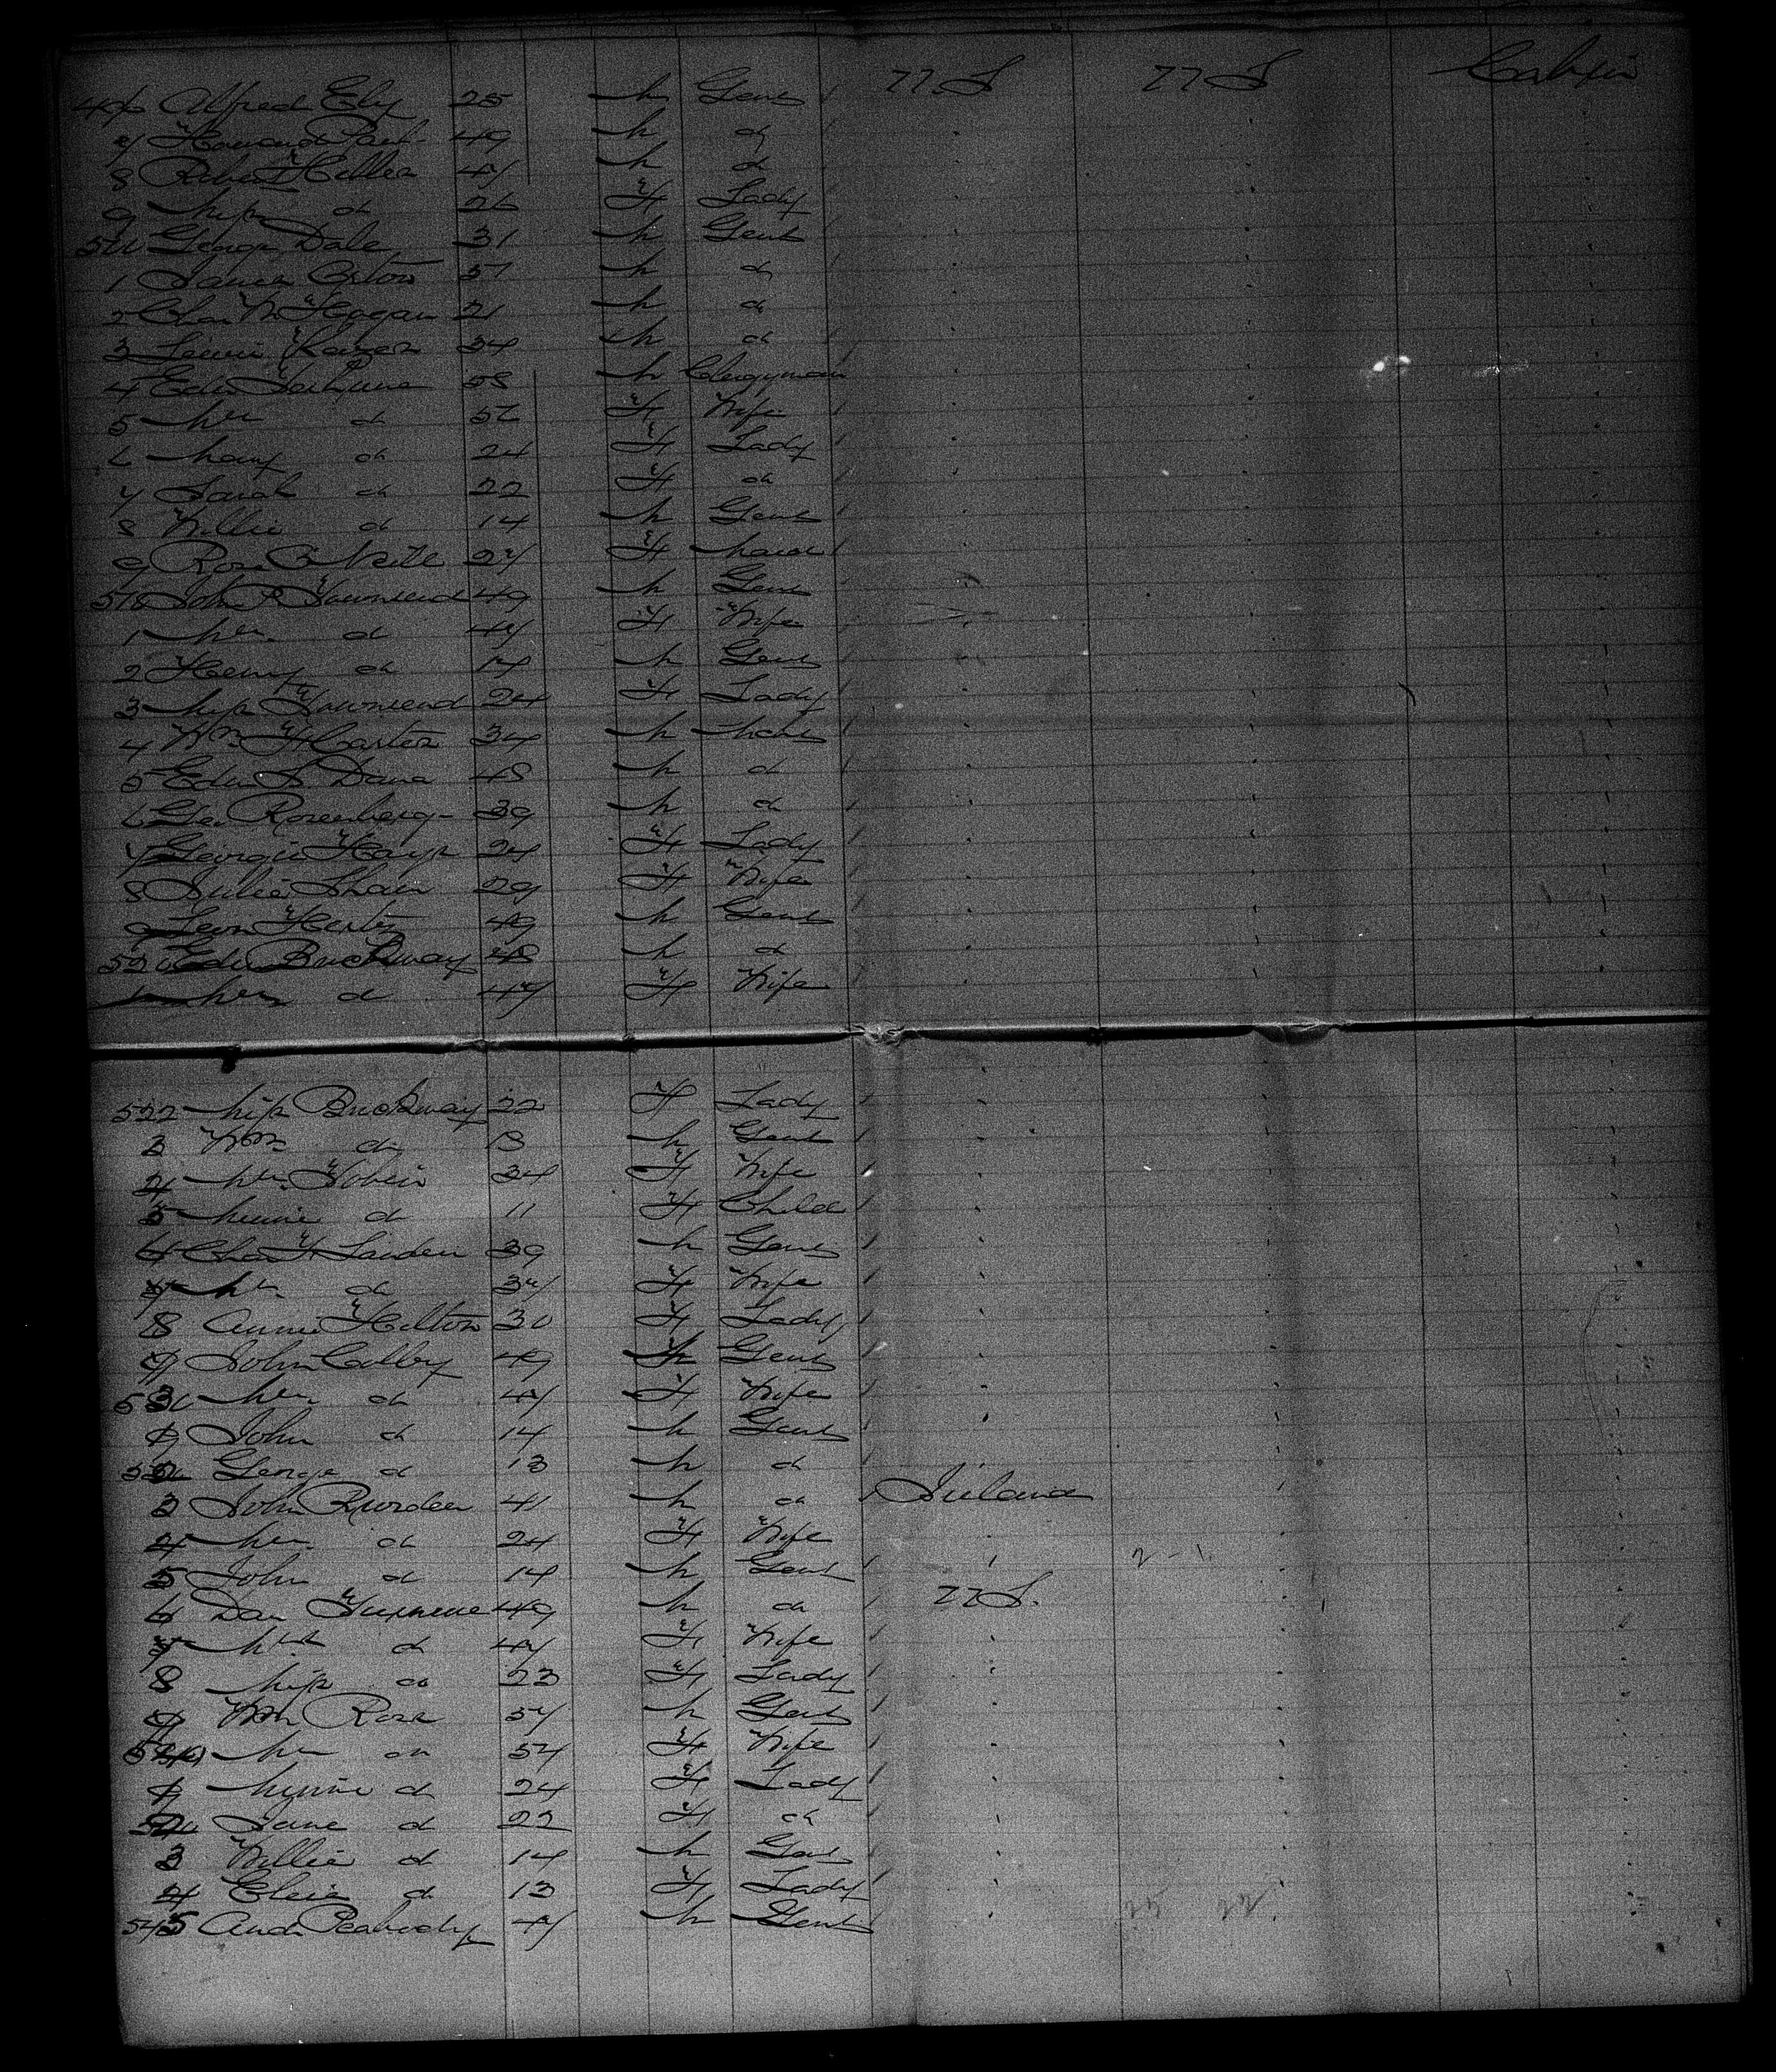 496 Alfred Ely 25 M Gent U.S. U.S. Cabin
7 Howard Paul 49 M do
8 Robert Heller 47 M do
9 Miss do 26 F Lady
500 George Dale 31 M Gent
1 James Orton 57 M do
2 Chas W Hogan 21 M do
3 Louis 34 M do
4 Edw 58 M Clergyman
5 Mrs do 52 F Wife
6 Mary do 24 F Lady
7 Sarah do 22 F do
8 Willie do 14 M Gent
9 Rose O'Neill 27 F Maid
510 John R Townsend 49 M Gent
1 Mrs. do 47 F Wife
2 Henry do 14 M Gent
3 Miss Townsend 24 F Lady
4 Wm H Carter 34 M Mcht
5 Edw S Dana 48 M do
6 Geo Rosenberg 39 M do
7 Georgie Hays 24 F Lady
8 Julia Shaw 29 F Wife
9 Leon Hertz 49 M Gent
520 Edw Buckway 48 M do
1 Mrs do 47 F Wife
522 Miss Buckway 22 F Lady
3 Wm do 13 M Gent
4 Mrs. Tobin 34 F Wife
5 Minnie do 11 F Child
6 Chas F Lauden 39 M Gent
7 Mrs. do 37 F Wife
8 Annie Hilton 30 F Lady
9 John Colby 49 M Gent
530 Mrs do 47 F Wife
1 John do 14 M Gent
2 George do 13 M do
3 John Riorden 41 M do Ireland
4 Mrs. do 24 F Wife
5 John do 14 M Gent 2-1
6 Dan 49 M do U.S.
7 Mrs do 47 F Wife
8 Miss do 23 F Lady
9 Wm Rose 57 M Gent
540 Mrs do 54 F Wife
1 Minnie do 24 F Lady
2 Jane do 22 F do
3 Willie do 14 M Gent
4 Elsie do 13 F Lady
545 And Peabody 47 M Gent 25 22